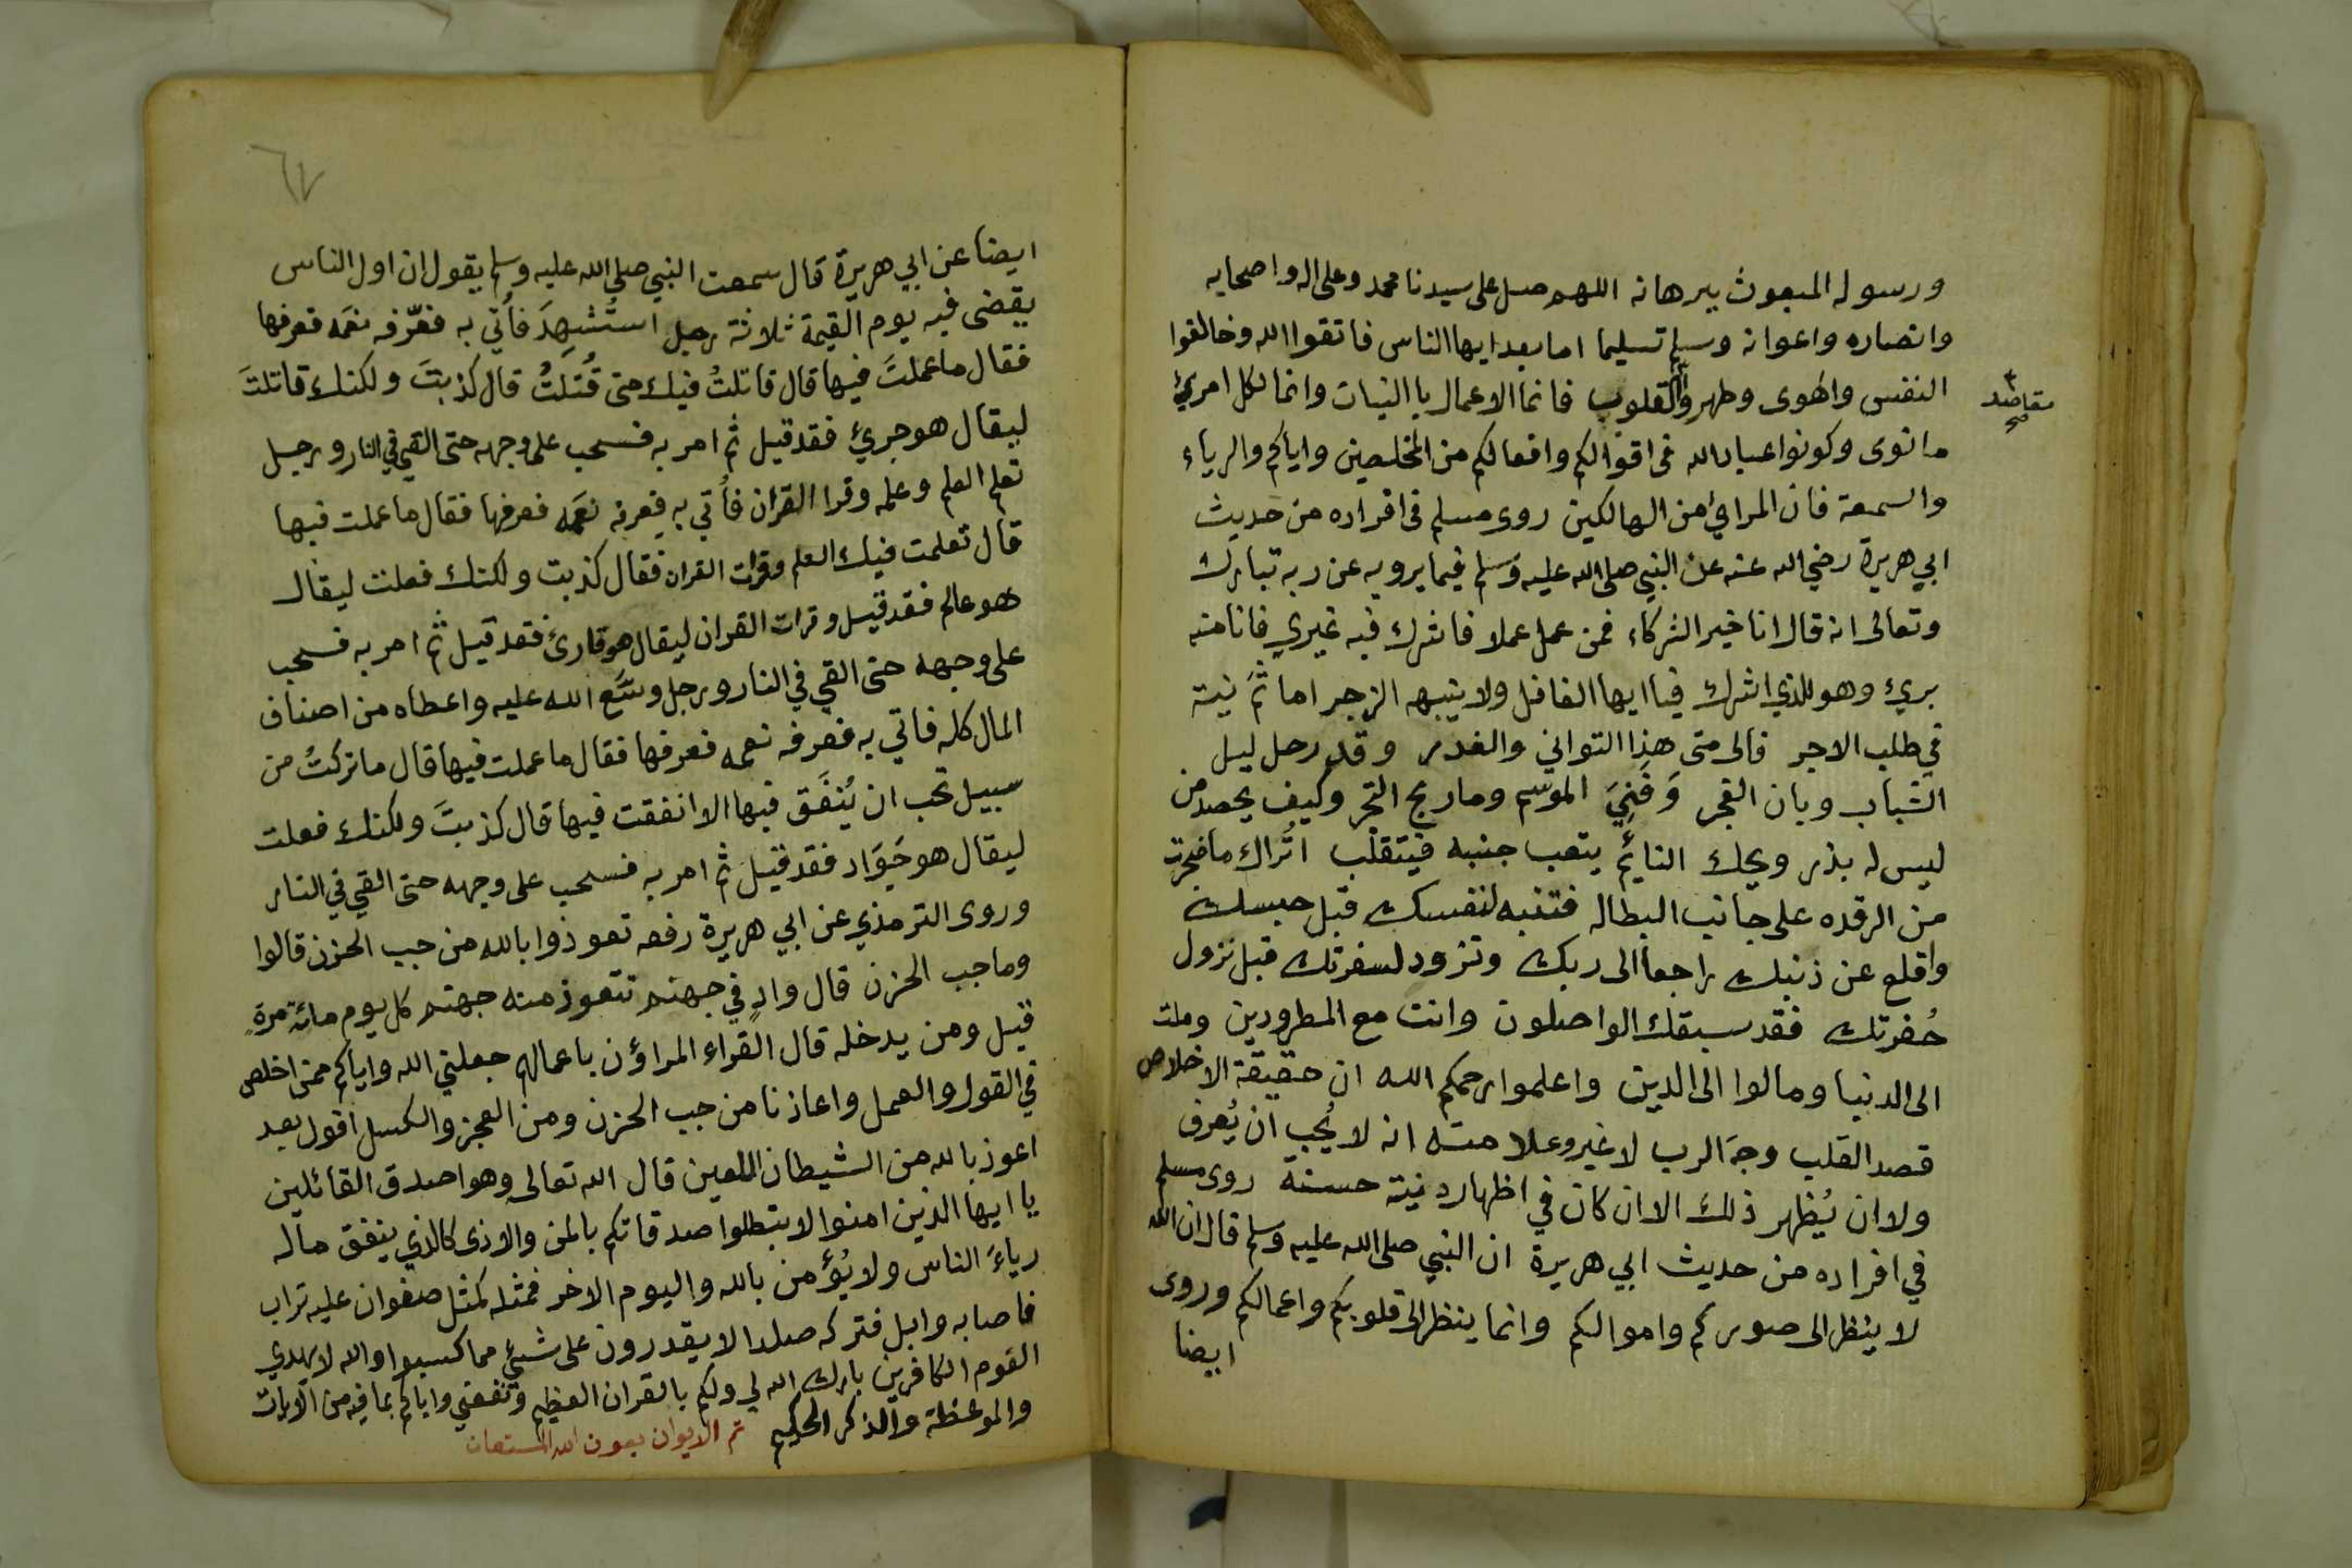 ورسوله المبعوث ببرهانه اللهم صل على سيدنا محمد وعلى اله واصحابه
وانصاره واعوانه وسلم تسليما اما بعد ايها الناس فاتقوا الله وخالفوا
النفس والهوى وطهروا القلوب فانما الاعمال بالنيات وانما لكل امرئ
مقاصد
صح
ما نوى وكونوا عباد الله في اقوالكم وافعالكم من المخلصين واياكم والرياء
والسمعة فان المرائي من الهالكين روى مسلم في افراده من حديث
ابي هريرة رضي الله عنه عن النبي صلى الله عليه وسلم فيما يرويه عن ربه تبارك
وتعالى انه قال انا خير الشركاء فمن عمل عملا فاشرك فيه غيري فانا منه
بريء وهو للذي اشرك فيا ايها الغافل ولا ينبهه الزجر اما ثَمَّ نية
في طلب الاجر فالى متى هذا التواني والغدر وقد رحل ليل
الشباب وبان الفجر وَفَنِيَ الموسم وما ربح التجر وكيف يحصد من
ليس له بذر ويحك النائم يتعب جنبه فيتقلب اتُراك ما ضجرت
من الرقده على جانب البطاله فتنبه لنفسك قبل حبسك
واقلع عن ذنبك راجعا الى ربك وتزود لسفرتك قبل نزول
حُفرتك فقد سبقك الواصلون وانت مع المطرودين وملت
الى الدنيا ومالوا الى الدين واعلموا رحمكم الله ان حقيقة الاخلاص
قصد القلب وجهَ الرب لا غير وعلامته انه لا يُحب ان يُعرف
ولا ان يُظهر ذلك الا ان كان في اظهاره نية حسنة روى مسلم
في افراده من حديث ابي هريرة ان النبي صلى الله عليه وسلم قال ان الله
لا ينظر الى صوركم واموالكم وانما ينظر الى قلوبكم واعمالكم وروى
ايضا
٦٧
ايضا عن ابي هريرة قال سمعت النبي صلى الله عليه وسلم يقول ان اول الناس
يقضى فيه يوم القيمة ثلاثة رجل استُشهِدَ فأُتي به فعرّفه نعمَه فعرفها
فقال ما عملتَ فيها قال قاتلتُ فيك حتى قُتلتُ قال كذبتَ ولكنك قاتلتَ
ليقال هو جريء فقد قيل ثم امر به فسحب على وجهه حتى القي في النار ورجل
تعلم العلم وعلمه وقرا القران فأُتي به فعرفه نعمَه فعرفها فقال ما عملت فيها
قال تعلمت فيك العلم وقرات القران فقال كذبت ولكنك فعلت ليقال
هو عالم فقد قيل وقرات القران ليقال هو قارئ فقد قيل ثم امر به فسحب
على وجهه حتى القي في النار ورجل وسَّع الله عليه واعطاه من اصناف
المال كله فاتي به فعرفه نعمه فعرفها فقال ما عملت فيها قال ما تركتُ من
سبيل تحب ان يُنفَق فيها الا انفقت فيها قال كذبتَ ولكنك فعلت
ليقال هو جَوَاد فقد قيل ثم امر به فسحب على وجهه حتى القي في النار
وروى الترمذي عن ابي هريرة رفعه تعوذوا بالله من جب الحزن قالوا
وما جب الحزن قال وادٍ في جهنم تتعوذ منه جهنم كل يوم مائة مرةٍ
قيل ومن يدخله قال القراء المراؤن باعمالهم جعلني الله واياكم ممن اخلص
في القول والعمل واعاذنا من جب الحزن ومن العجز والكسل اقول بعد
اعوذ بالله من الشيطان اللعين قال الله تعالى وهو اصدق القائلين
يا ايها الذين امنوا لا تبطلوا صدقاتكم بالمن والاذى كالذي ينفق ماله
رياءَ الناس ولا يُؤمن بالله واليوم الاخر فمثله كمثل صفوان عليه تراب
فاصابه وابل فتركه صلدا لا يقدرون على شيء مما كسبوا والله لا يهدي
القوم الكافرين بارك الله لي ولكم بالقران العظيم ونفعني واياكم بما فيه من الايات
والموعظة والذكر الحكيم تم الديوان بعون الله المستعان